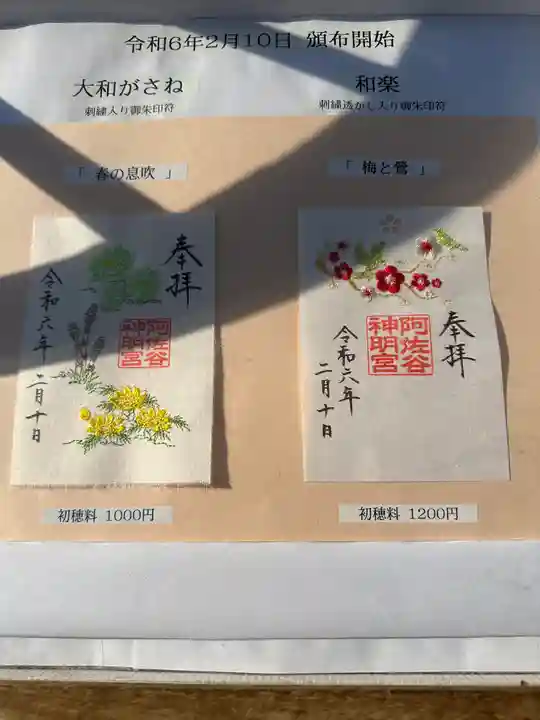 令和6年2月10日 頒布開始
大和がさね
刺繍入り御朱印符
「 春の息吹 」
奉拝
阿佐谷
神明宮
令和六年
二月十日
初穂料 1000円
和楽
刺繍透かし入り御朱印符
「 梅と鶯 」
奉拝
阿佐谷
神明宮
令和六年
二月十日
初穂料 1200円